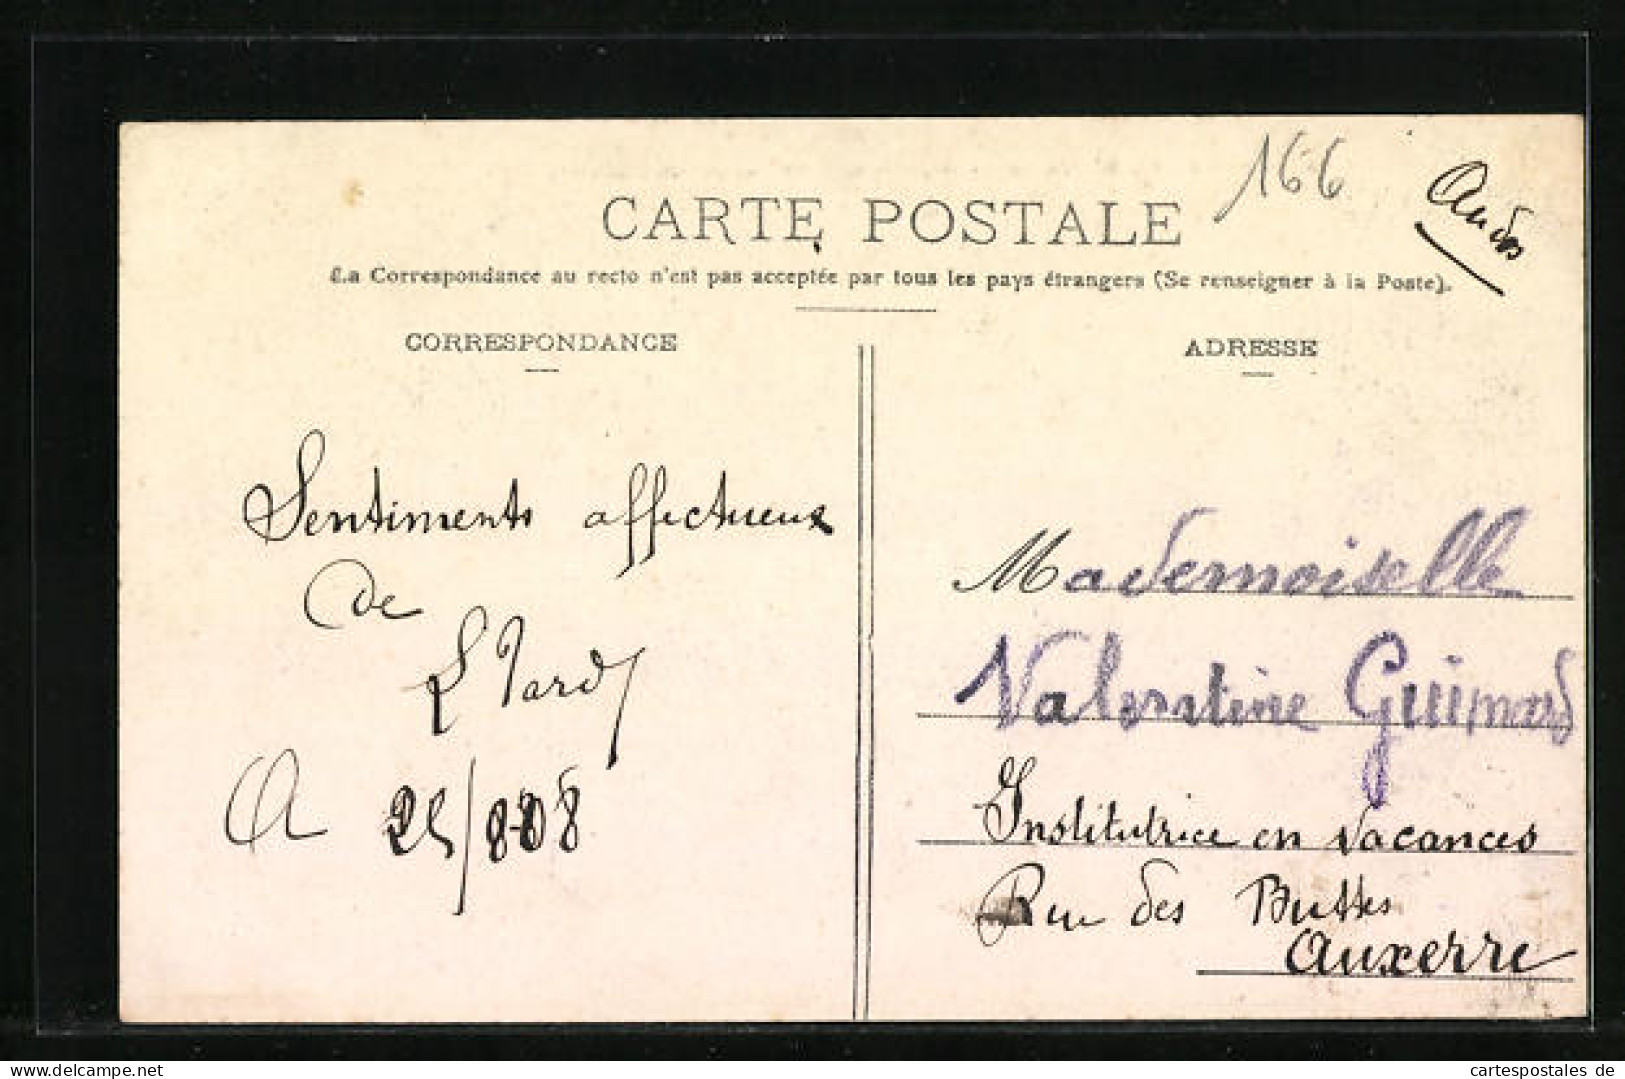 166
CARTE POSTALE
La Correspondance au recto n'est pas acceptée par tous les pays étrangers (Se renseigner à la Poste).
CORRESPONDANCE
Sentiments affectueux
de
L Tardy
A 25/8-08
ADRESSE
Mademoiselle
Valentine Guimard
Institutrice en Vacances
Rue des Buttes
Auxerre
cartespostales de